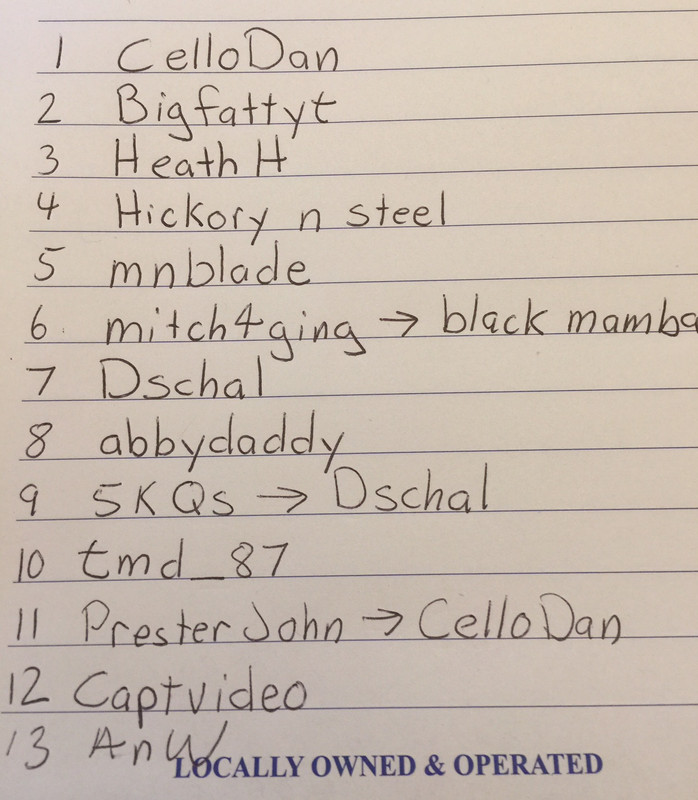 1 CelloDan
2 Bigfattyt
3 Heath H
4 Hickory n steel
5 mnblade
6 mitch4ging → black mamba
7 Dschal
8 abbydaddy
9 5KQs → Dschal
10 tmd_87
11 PresterJohn → CelloDan
12 Captvideo
13 AnW
LOCALLY OWNED & OPERATED